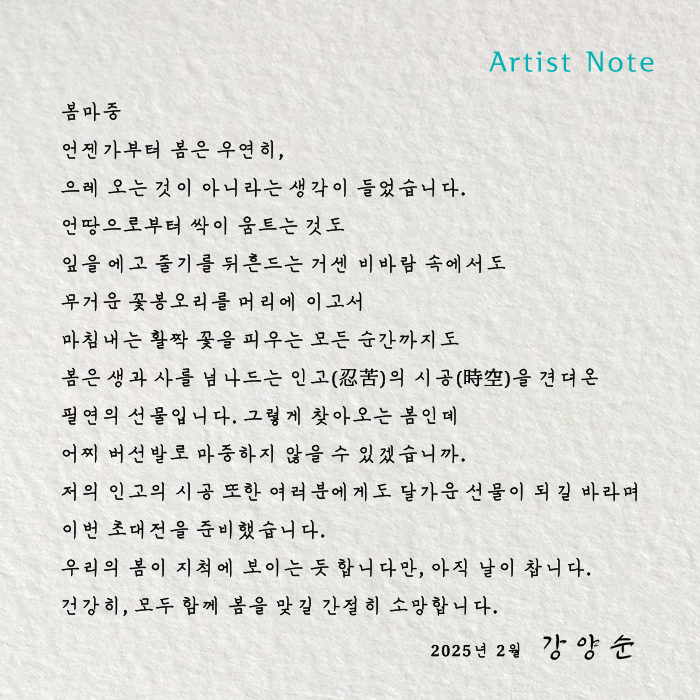 Artist Note
봄마중
언젠가부터 봄은 우연히,
으레 오는 것이 아니라는 생각이 들었습니다.
언땅으로부터 싹이 움트는 것도
잎을 에고 줄기를 뒤흔드는 거센 비바람 속에서도
무거운 꽃봉오리를 머리에 이고서
마침내는 활짝 꽃을 피우는 모든 순간까지도
봄은 생과 사를 넘나드는 인고(忍苦)의 시공(時空)을 견뎌온
필연의 선물입니다. 그렇게 찾아오는 봄인데
어찌 버선발로 마중하지 않을 수 있겠습니까.
저의 인고의 시공 또한 여러분에게도 달가운 선물이 되길 바라며
이번 초대전을 준비했습니다.
우리의 봄이 지척에 보이는 듯 합니다만, 아직 날이 찹니다.
건강히, 모두 함께 봄을 맞길 간절히 소망합니다.
2025년 2월 강양순